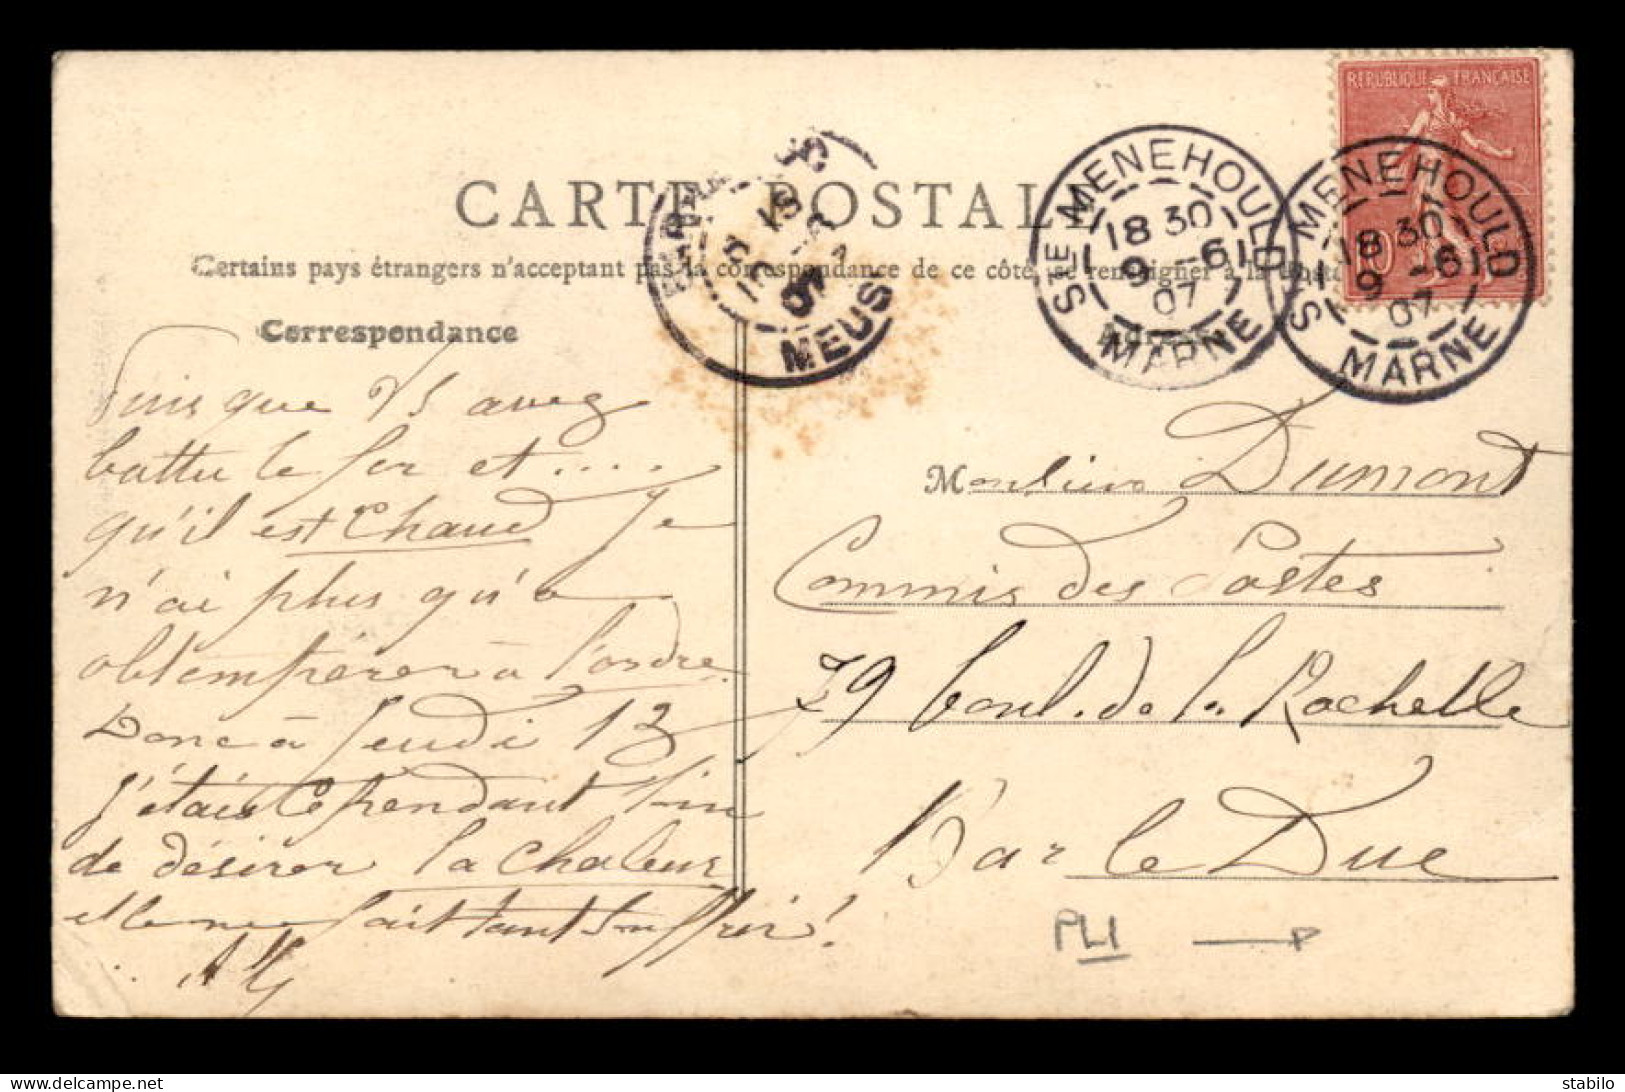 RÉPUBLIQUE FRANÇAISE
10
CARTE POSTALE
Certains pays étrangers n'acceptent pas la correspondance de ce côté, se renseigner à la
Correspondance
BAR LE DUC
MEUSE
07
STE MENEHOULD
18 30
9 -6
07
MARNE
STE MENEHOULD
18 30
9 -6
07
MARNE
Puisque Vs avez
battu le fer et ....
qu'il est chaud Je
n'ai plus qu'a
obtempérer à l'ordre.
Donc à Jeudi 13
J'étais cependant loin
de désirer la chaleur
elle me fait tant souffrir!
Monsieur Dumont
Commis des Postes
79 boul. de la Rochelle
Bar le Duc
PLI
stabilo